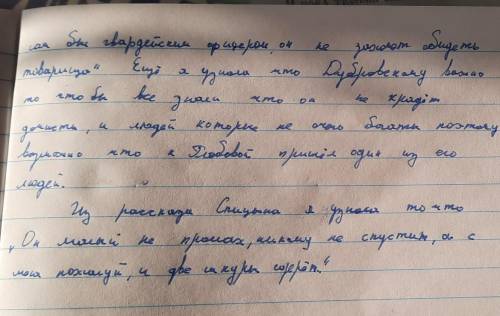 сам был гвардейским офицером, он не захочет обидеть
товарища" Ещё я узнала что Дубровскому важно
то чтобы все знали что он не крадёт
деньги, у людей которые не очень богаты поэтому
возможно что к Глобовой пришёл один из его
людей.
Из рассказа Спицына я узнала то что
„Он малый не промах, никому не спустит, а с
меня пожалуй, и две шкуры сдерёт."